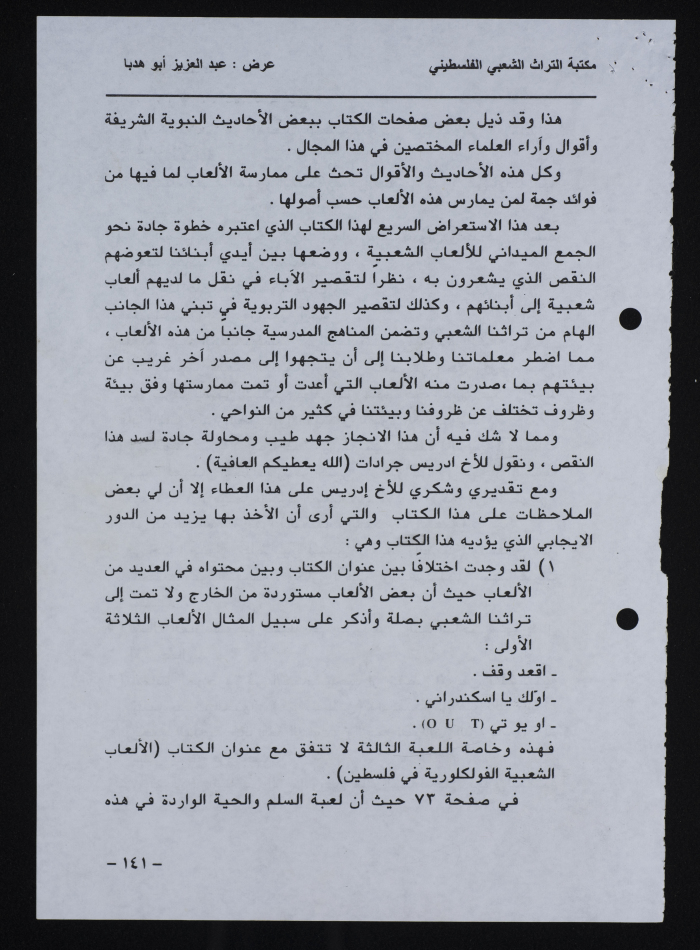 مكتبة التراث الشعبي الفلسطيني
عرض : عبد العزيز أبو هدبا
هذا وقد ذيل بعض صفحات الكتاب ببعض الأحاديث النبوية الشريفة
وأقوال وآراء العلماء المختصين في هذا المجال .
وكل هذه الأحاديث والأقوال تحث على ممارسة الألعاب لما فيها من
فوائد جمة لمن يمارس هذه الألعاب حسب أصولها .
بعد هذا الاستعراض السريع لهذا الكتاب الذي اعتبره خطوة جادة نحو
الجمع الميداني للألعاب الشعبية ، ووضعها بين أيدي أبنائنا لتعوضهم
النقص الذي يشعرون به ، نظراً لتقصير الآباء في نقل ما لديهم ألعاب
شعبية إلى أبنائهم ، وكذلك لتقصير الجهود التربوية في تبني هذا الجانب
الهام من تراثنا الشعبي وتضمن المناهج المدرسية جانباً من هذه الألعاب ،
مما اضطر معلماتنا وطلابنا إلى أن يتجهوا إلى مصدر آخر غريب عن
بيئتهم بما ،صدرت منه الألعاب التي أعدت أو تمت ممارستها وفق بيئة
وظروف تختلف عن ظروفنا وبيئتنا في كثير من النواحي .
ومما لا شك فيه أن هذا الانجاز جهد طيب ومحاولة جادة لسد هذا
النقص ، ونقول للأخ ادريس جرادات (الله يعطيكم العافية) .
ومع تقديري وشكري للأخ إدريس على هذا العطاء إلا أن لي بعض
الملاحظات على هذا الكتاب والتي أرى أن الأخذ بها يزيد من الدور
الايجابي الذي يؤديه هذا الكتاب وهي :
١) لقد وجدت اختلافاً بين عنوان الكتاب وبين محتواه في العديد من
الألعاب حيث أن بعض الألعاب مستوردة من الخارج ولا تمت إلى
تراثنا الشعبي بصلة وأذكر على سبيل المثال الألعاب الثلاثة
الأولى :
ـ اقعد وقف .
ـ اولك يا اسكندراني .
ـ او يو تي (O U T) .
فهذه وخاصة اللعبة الثالثة لا تتفق مع عنوان الكتاب (الألعاب
الشعبية الفولكلورية في فلسطين) .
في صفحة ٧٣ حيث أن لعبة السلم والحية الواردة في هذه
– ١٤١ –